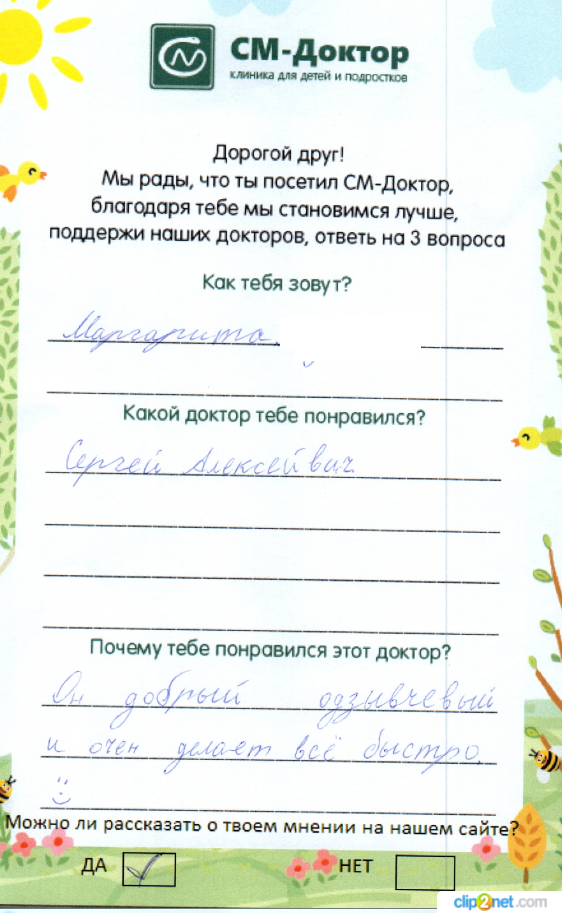 СМ-Доктор
клиника для детей и подростков
Дорогой друг!
Мы рады, что ты посетил СМ-Доктор,
благодаря тебе мы становимся лучше,
поддержи наших докторов, ответь на 3 вопроса
Как тебя зовут?
Маргарита.
Какой доктор тебе понравился?
Сергей Алексейвич
Почему тебе понравился этот доктор?
Он добрый одзывчевый
и очен делает всё быстро.
Можно ли рассказать о твоем мнении на нашем сайте?
ДА НЕТ
clip2net.com